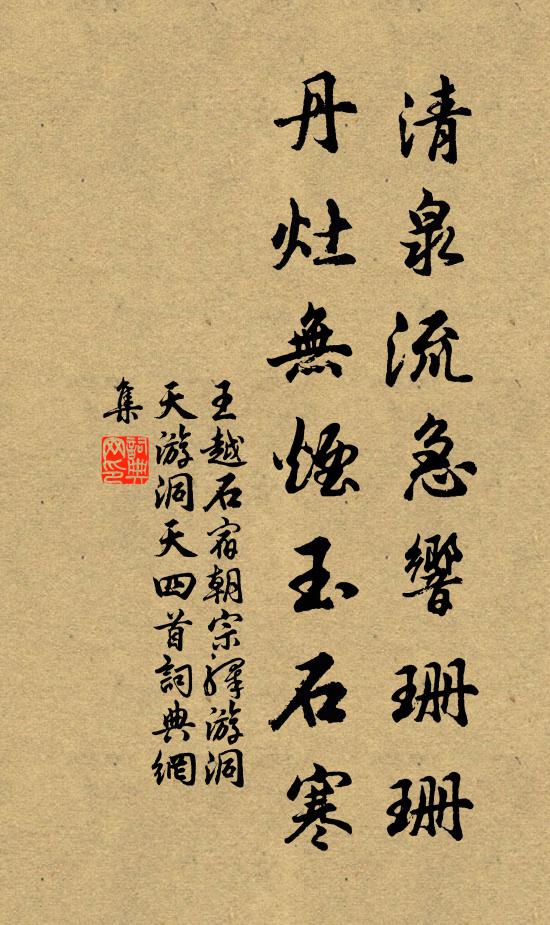 清泉流急響珊珊
丹灶無煙玉石寒
王越石宿朝宗驛游洞
天游洞天四首詞典網
集
詞典
网印